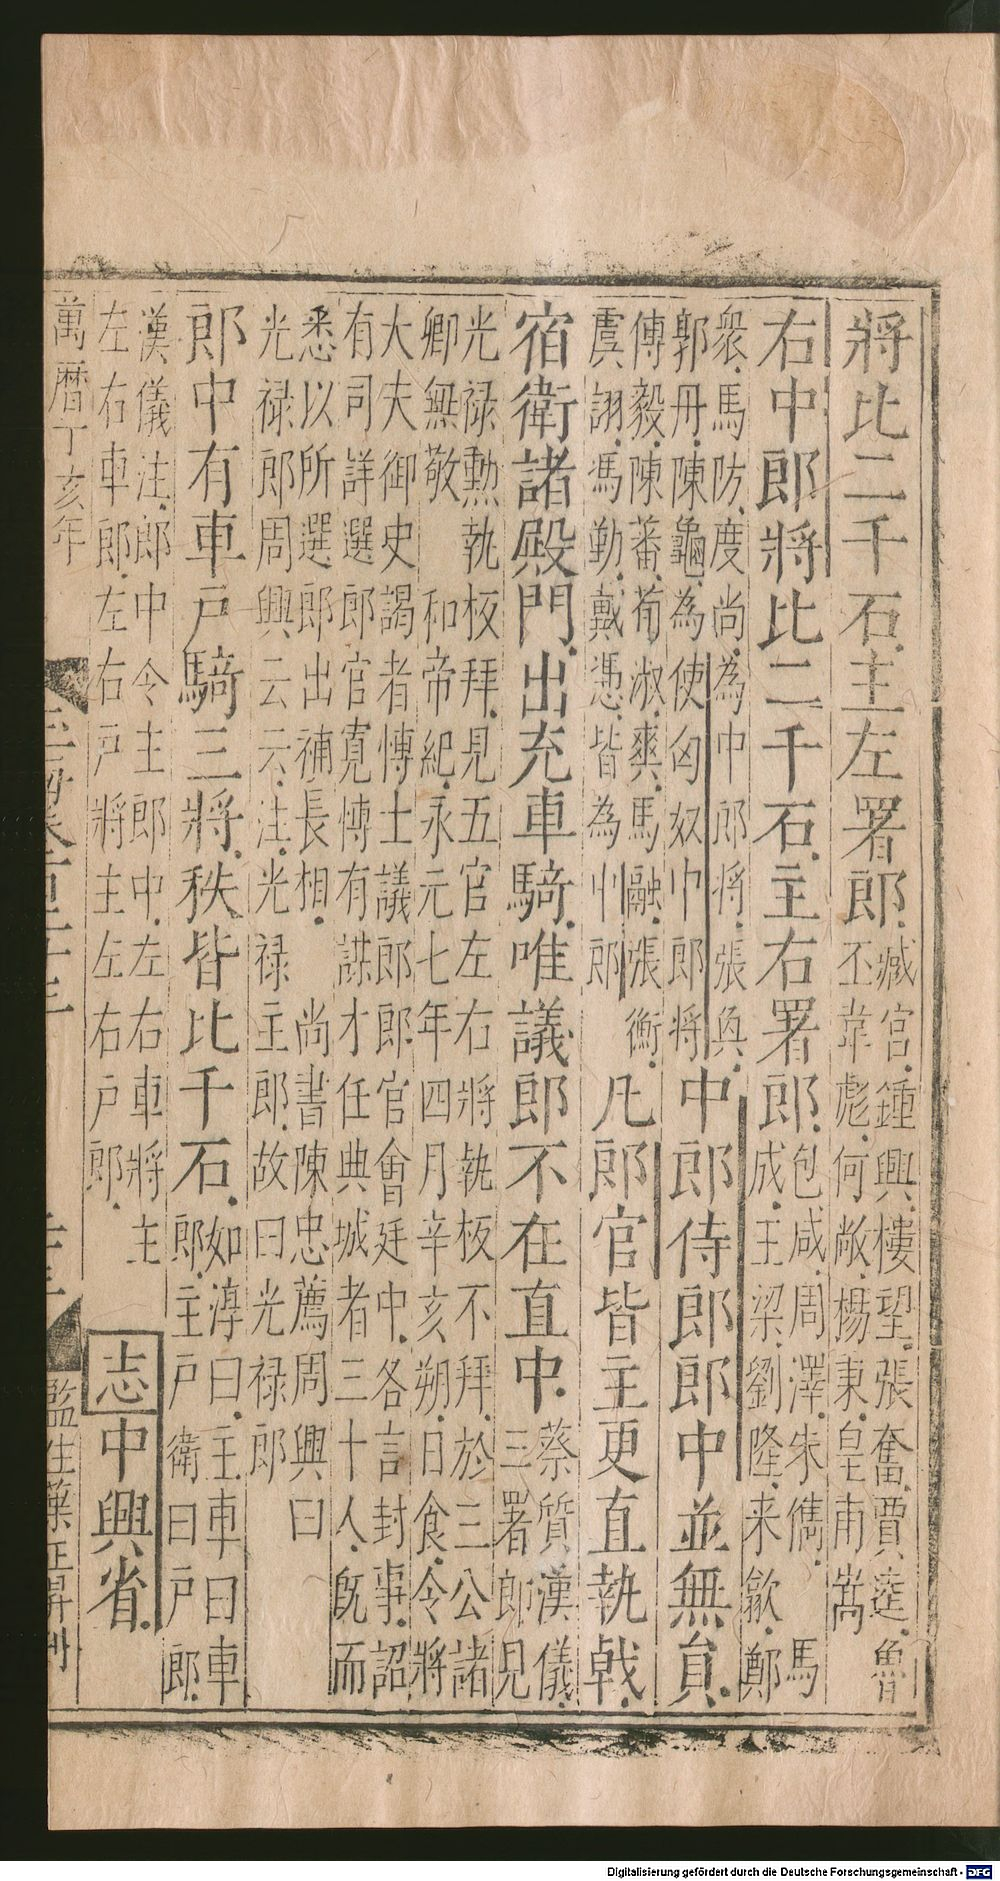 將比二千石主左署郎臧宮鍾興樓望張奮賈逵魯
丕韋彪何敞楊秉皇甫嵩
右中郎將比二千石主右署郎包咸周澤朱儁馬
成王梁劉隆来歙鄭
衆馬防度尚為中郎將張奐
郭丹陳龜為使匈奴中郎將中郎侍郎郎中並無員
傅毅陳蕃荀淑爽馬融張衡
虞詡馮勤戴憑皆為州郎凡郎官皆主更直執戟
宿衛諸殿門出充車騎唯議郎不在直中蔡質漢儀
三署郎見
光禄勲執板拜見五官左右將執板不拜於三公諸
卿無敬 和帝紀永元七年四月辛亥朔日食令將
大夫御史謁者博士議郎郎官會廷中各言封事詔
有司詳選郎官寛博有謀才任典城者三十人既而
悉以所選郎出補長相 尚書陳忠薦周興曰
光禄郎周興云云注光禄主郎故曰光禄郎
郎中有車戸騎三將秩皆比千石如淳曰主車曰車
郎主戸衛曰戸郎
漢儀注郎中令主郎中左右車將主
左右車郎左右戸將主左右戸郎
志中興省
萬暦丁亥年
監生葉正昇刊
Digitalisierung gefördert durch die Deutsche Forschungsgemeinschaft - DFG